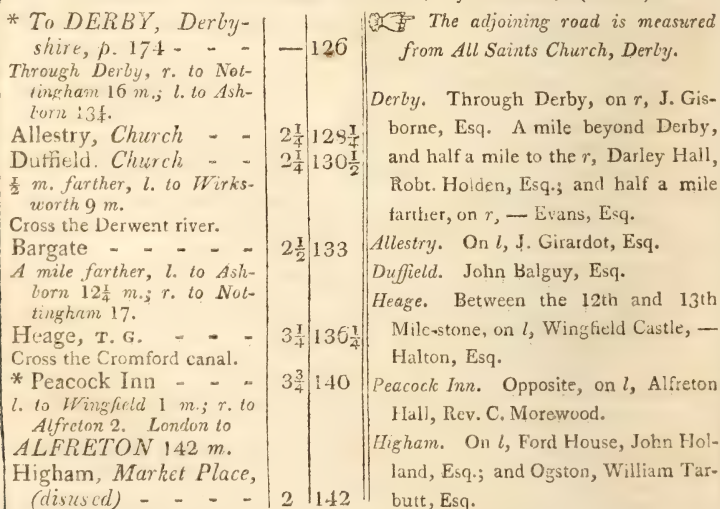 * To DERBY, Derby-
shire, p. 174 - - - — 126
Through Derby, r. to Not-
tingham 16 m.; l. to Ash-
born 13¼.
Allestry, Church - - 2¼ 128¼
Duffield. Church - - 2¼ 130½
½ m. farther, l. to Wirks-
worth 9 m.
Cross the Derwent river.
Bargate - - - - - 2½ 133
A mile farther, l. to Ash-
born 12¼ m.; r. to Not-
tingham 17.
Heage, T. G. - - - 3¼ 136¼
Cross the Cromford canal.
* Peacock Inn - - - 3¾ 140
l. to Wingfield 1 m.; r. to
Alfreton 2. London to
ALFRETON 142 m.
Higham, Market Place,
(disused) - - - - 2 142
☞ The adjoining road is measured
from All Saints Church, Derby.
Derby. Through Derby, on r, J. Gis-
borne, Esq. A mile beyond Derby,
and half a mile to the r, Darley Hall,
Robt. Holden, Esq.; and half a mile
farther, on r, — Evans, Esq.
Allestry. On l, J. Girardot, Esq.
Duffield. John Balguy, Esq.
Heage. Between the 12th and 13th
Mile-stone, on l, Wingfield Castle, —
Halton, Esq.
Peacock Inn. Opposite, on l, Alfreton
Hall, Rev. C. Morewood.
Higham. On l, Ford House, John Hol-
land, Esq.; and Ogston, William Tar-
butt, Esq.